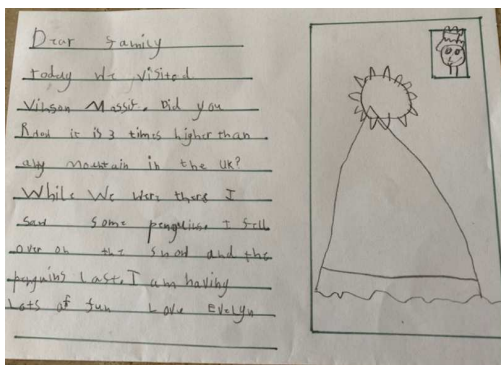 Dear family
today we visited
Vinson Massif. Did you
it is 3 times higher than
any mountain in the UK?
While we were there I
saw some penguins. I fell
over on the snow and the
penguins Last. I am having
Lots of fun Love Evelyn